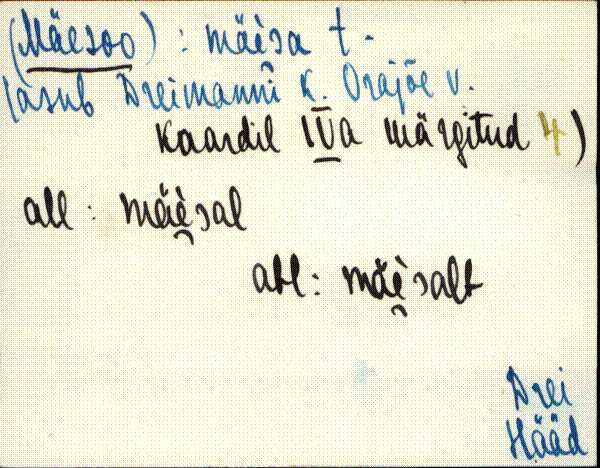 (Mäesoo) : mäe̯sa t.
(asub Dreimanni k. Orajõe v.
Kaardil IVa märgitud 4)
all : mäè̯sal
abl : mäè̯salt
Drei
Hääd